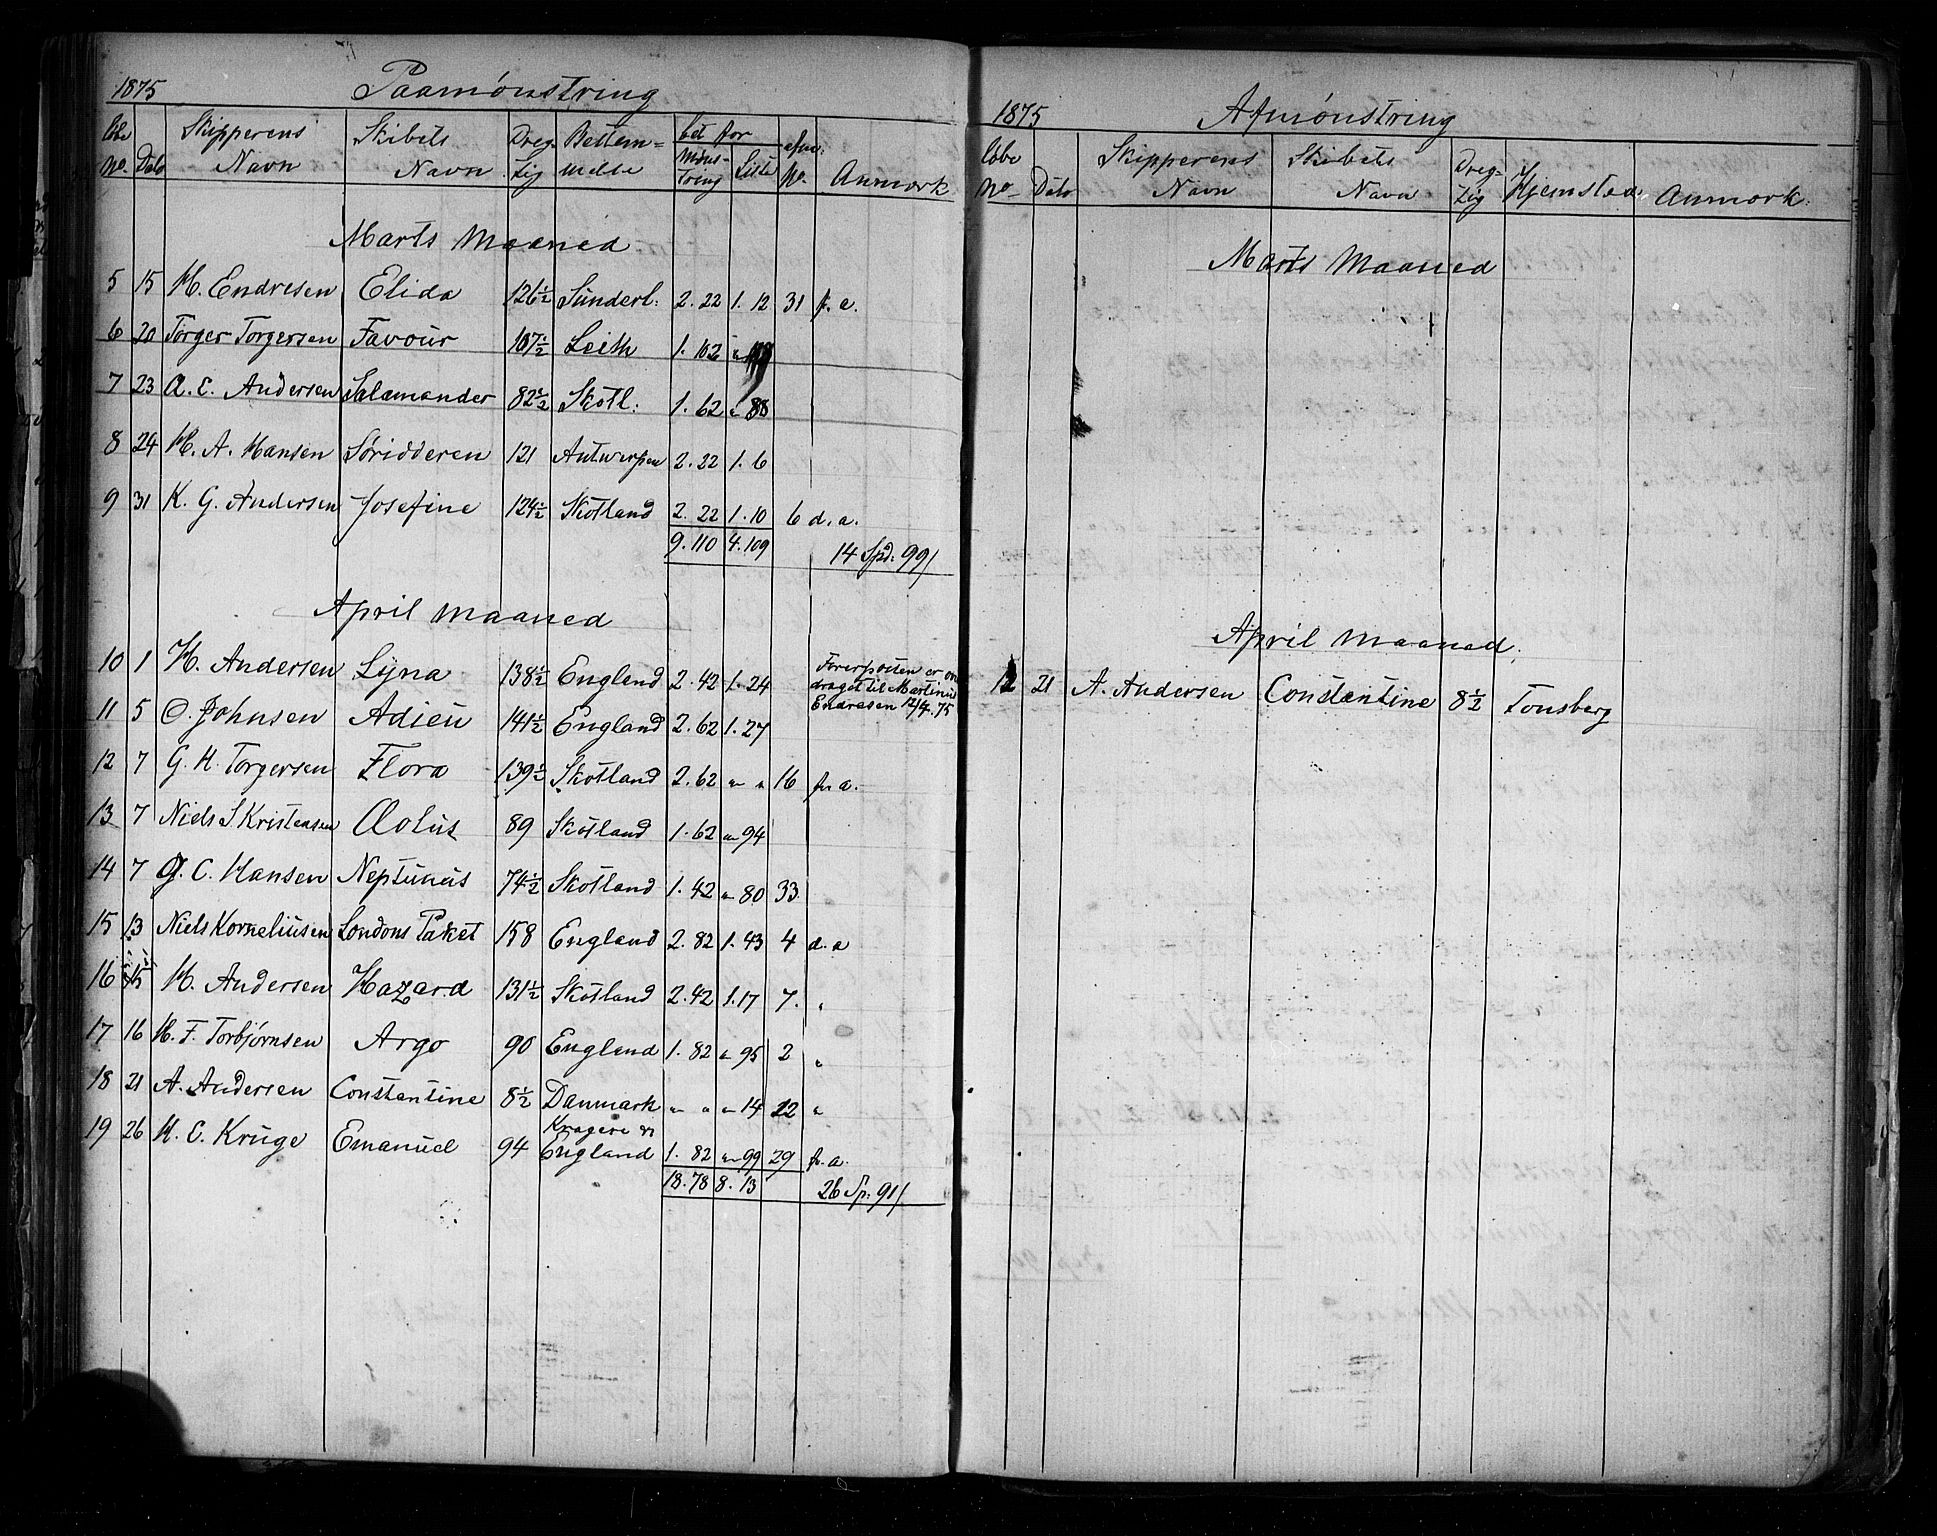 1875 Paamønstring
løbe No. Dato Skipperens Navn Skibets Navn Dreg-tig Bestem=melse bet for Mønstring Liste afm: No. Anmærk
Marts Maaned
5 15 H. Endresen Elida 126½ Sunderl: 2. 22 1. 12 31 f. a.
6 20 Torger Torgersen Favour 107½ Leith 1. 102 "
7 23 A. E. Andersen Salamander 82½ Skotl: 1. 62 " 88
8 24 H. A. Hansen Søridderen 121 Antwerpen 2. 22 1. 6
9 31 K. G. Andersen Josefine 124½ Skotland 2. 22 1. 10 6 d. a.
9. 110 4. 109 14 Spd: 99/
April Maaned
10 1 H. Andersen Lyna 138½ England 2. 42 1. 24 Førerposten er ov
draget til Martinus
Endresen 12/4. 75
11 5 O. Johnsen Adieu 141½ England 2. 62 1. 27
12 7 G. H. Torgersen Flora 139½ Skotland 2. 62 " " 16 f. a.
13 7 Niels S Kristensen Æolus 89 Skotland 1. 62 " 94
14 7 G. C. Hansen Neptunus 74½ Skotland 1. 42 " 80 33
15 13 Niels Korneliusen Londons Paket 158 England 2. 82 1. 43 4 d. a
16 15 H. Andersen Hazard 131½ Skotland 2. 42 1. 17 7. "
17 16 H. F. Torbjørnsen Argo 90 England 1. 82 " 95 2 "
18 21 A. Andersen Constantine 8½ Danmark " " " 14 12 "
19 26 H. C. Kruge Emanuel 94 Kragerø &
England 1. 82 " 99 29 f. a.
18. 78 8. 13 26 Sp: 91/
1875 Afmønstring
løbe No Dato Skipperens Navn Skibets Navn Dreg-tig Hjemsted Anmærk:
Marts Maaned
April Maaned
12 21 A. Andersen Constantine 8½ Tonsberg